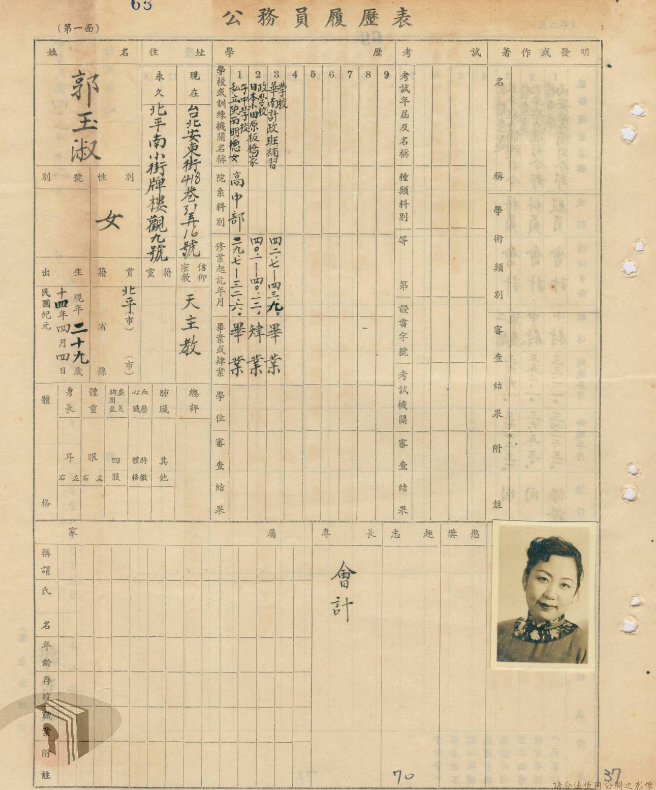 68
公務員履歷表
(第一面)
姓名
郭玉淑
別號
性別
女
出生
民國紀元
十四年四月四日
現年二十九歲
籍貫
北平(市)
省
縣(市)
住址
永久 北平南小街牌樓觀九號
現在 台北安東街418巷31弄16號
籍
宗教
信仰
天主教
體格
身長
體重
四肢
心臟
血壓
肺臟
總評
耳 左 右
眼 左 右
其他
體格
特徵
學歷
學校或訓練機關名稱
院系科別
修業起訖年月
畢業或肄業
學位
審查結果
1 2 3 4 5 6 7 8 9
高中部
二九.七—三二.六.
畢業
四〇.一—四〇.一二.
肄業
四二.七—四三.九.
畢業
考試
考試年屆及名稱
種類科別
等第
證書字號
考試機關
審查結果
著作或發明
名稱
學術類別
審查結果
附註
家屬
稱謂
氏名
年齡
存歿
職業
附註
專長
會計
志趣
獎懲
70
37